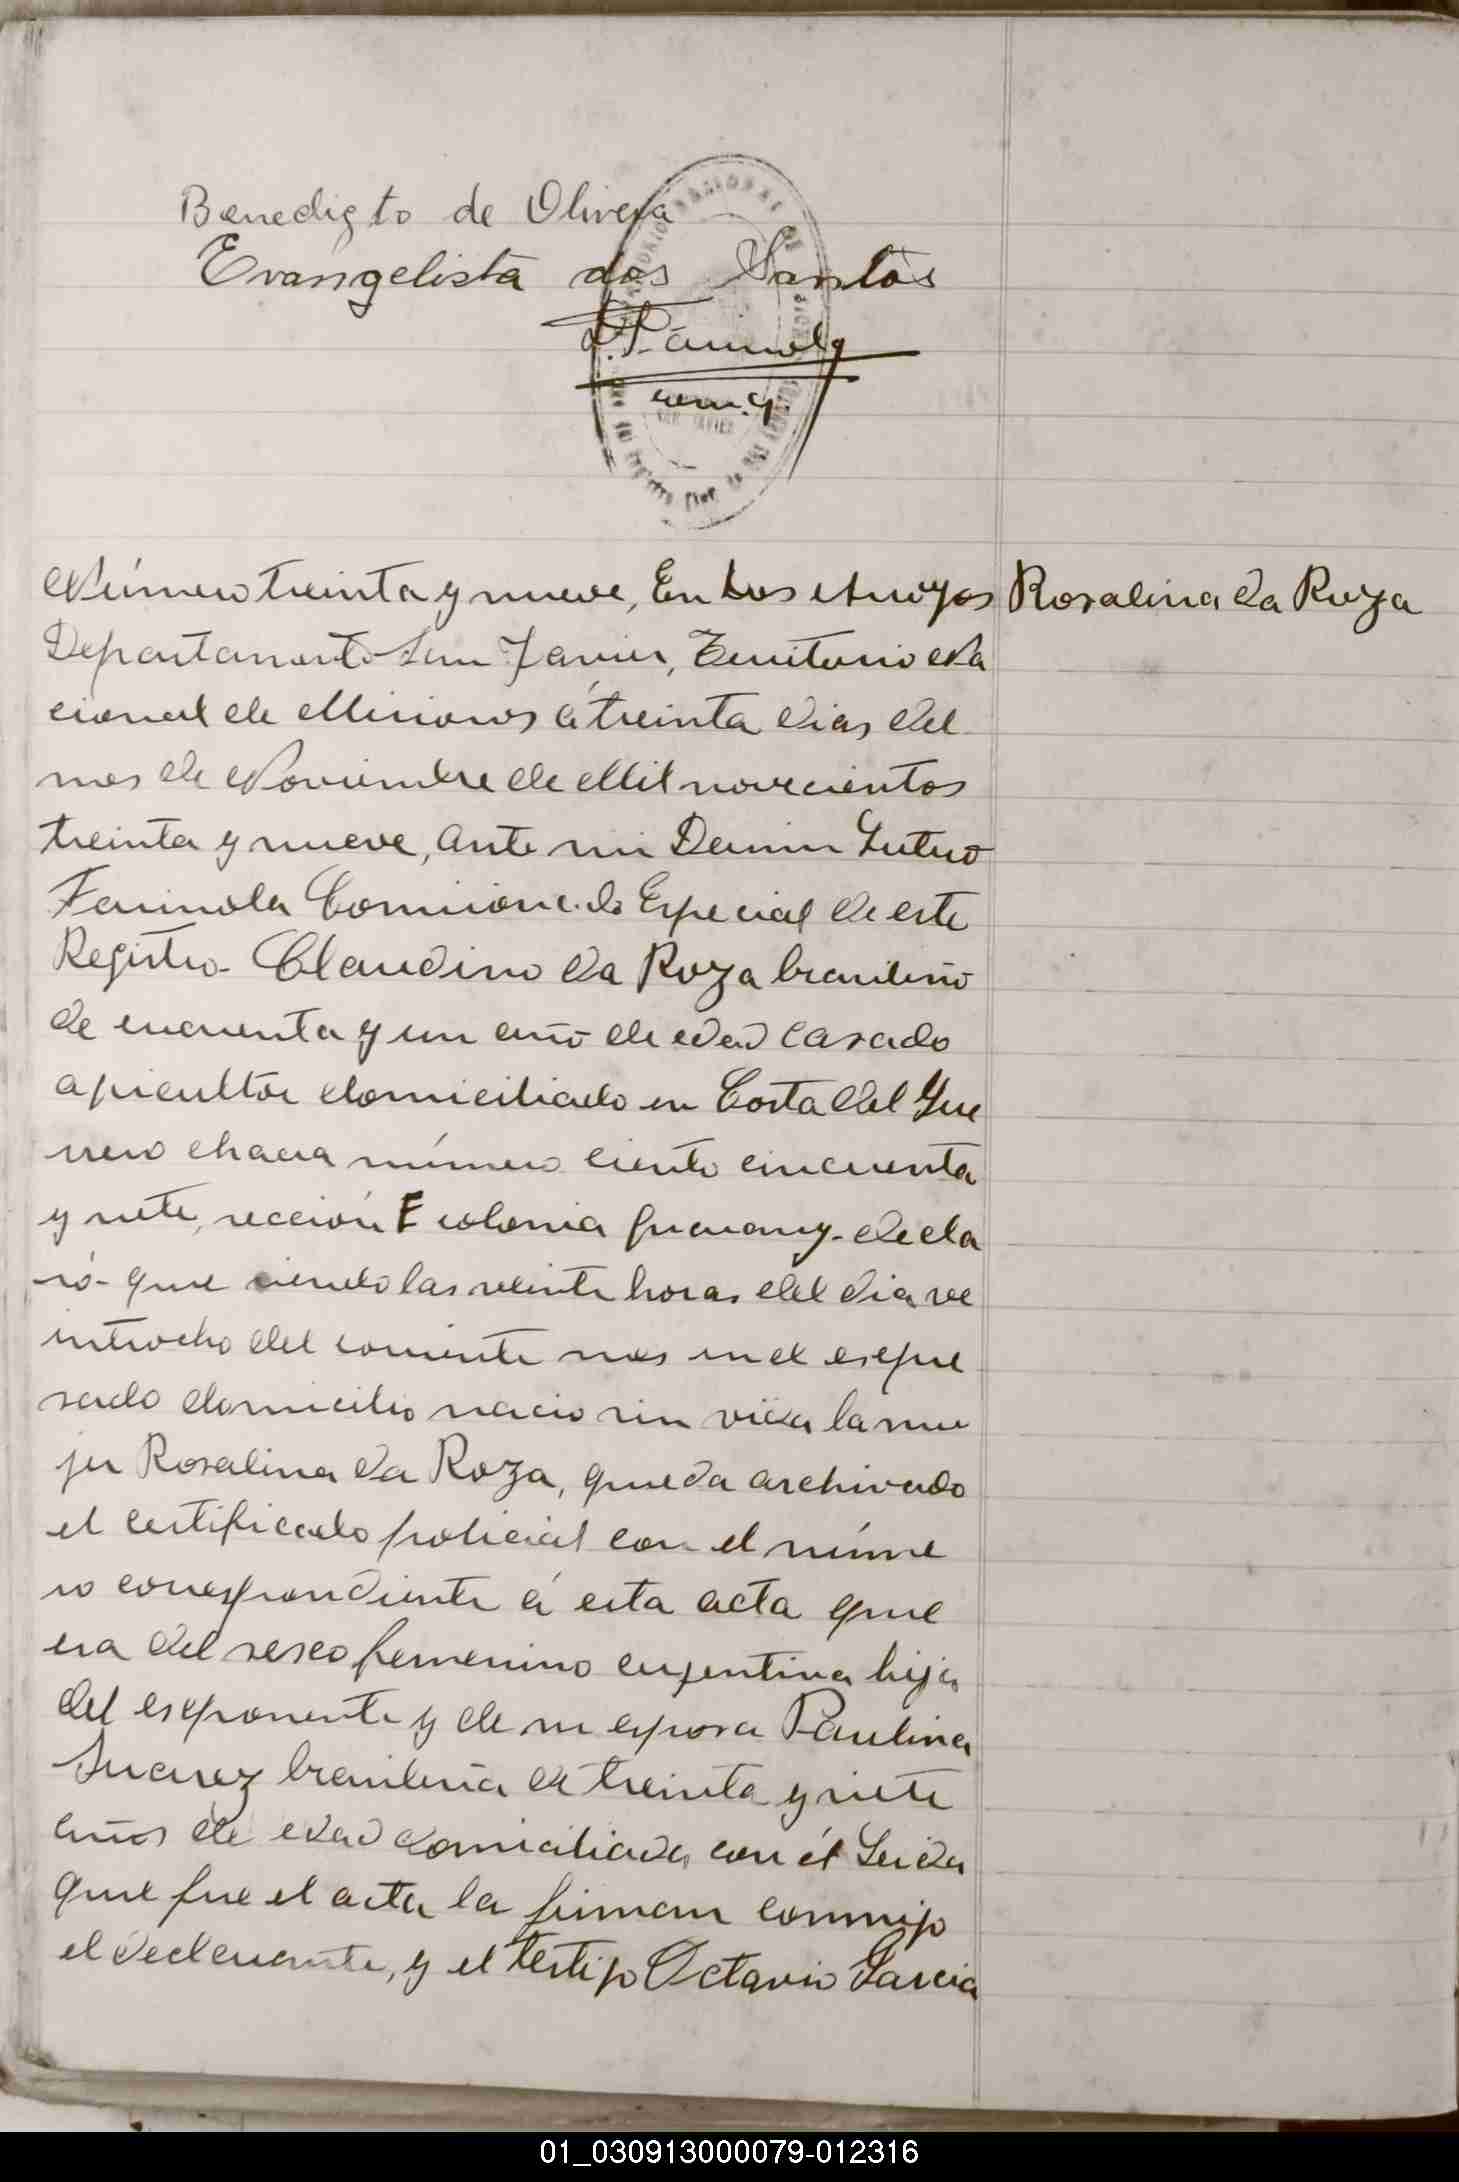 Benedigto de Olivera
Evangelista dos Santos
Número treinta y nueve, En Los Arroyos
Rosalina da Roza
Departamento San Javier, Territorio Na
cional de Misiones á treinta dias del
mes de Noviembre de Mil novecientos
treinta y nueve, ante mi
Farinola Comisionado Especial de este
Registro- Claudino da Roza brasileño
de cincuenta y un año de edad casado
apicultor domiciliado en Costa del Gue
rrero chacra número ciento cincuenta
y siete, sección E colonia guarany- decla
ró- que siendo las veinte horas del dia ve
intiocho del corriente mes en el espre
sado domicilio nacio sin vida la mu
jer Rosalina da Roza, queda archivado
el certificado policial con el núme
ro correspondiente á esta acta que
era del sexo femenino argentina hija
del exponente y de su esposa Paulina
Suarez brasileña de treinta y siete
años de edad domiciliada con él Leida
que fue el acta la firman conmigo
el declarante, y el testigo Octavio Garcia
01_030913000079-012316